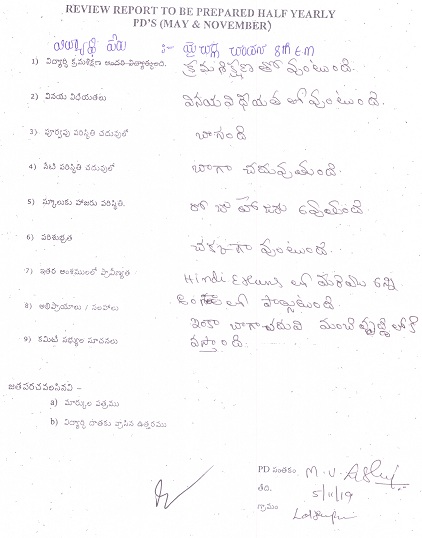 REVIEW REPORT TO BE PREPARED HALF YEARLY
PD'S (MAY & NOVEMBER)
పేరు :- 8th E.M
1) విద్యార్థి క్రమశిక్షణ క్రమశిక్షణ తో వుంటుంది.
2) వినయ విధేయతలు వినయ విధేయత తో వుంటుంది.
3) పూర్వపు పరిస్థితి చదువులో బాగుంది
4) నేటి పరిస్థితి చదువులో బాగా చదువుతుంది.
5) స్కూలుకు హాజరు పరిస్థితి. రోజు హాజరు అవుతుంది.
6) పరిశుభ్రత చక్కగా వుంటుంది.
7) ఇతర అంశములలో ప్రావీణ్యత Hindi Exams లో మరియు అన్ని
8) అభిప్రాయాలు / సలహాలు లో పాల్గొంటుంది
9) కమిటీ సభ్యుల సూచనలు ఇంకా బాగా చదివి మంచి వృద్ధి లోకి
వస్తుంది.
జతపరచవలసినవి –
a) మార్కుల పత్రము
b) విద్యార్థి దాతకు వ్రాసిన ఉత్తరము
PD సంతకం M. V.
తేది. 5/11/19
గ్రామం